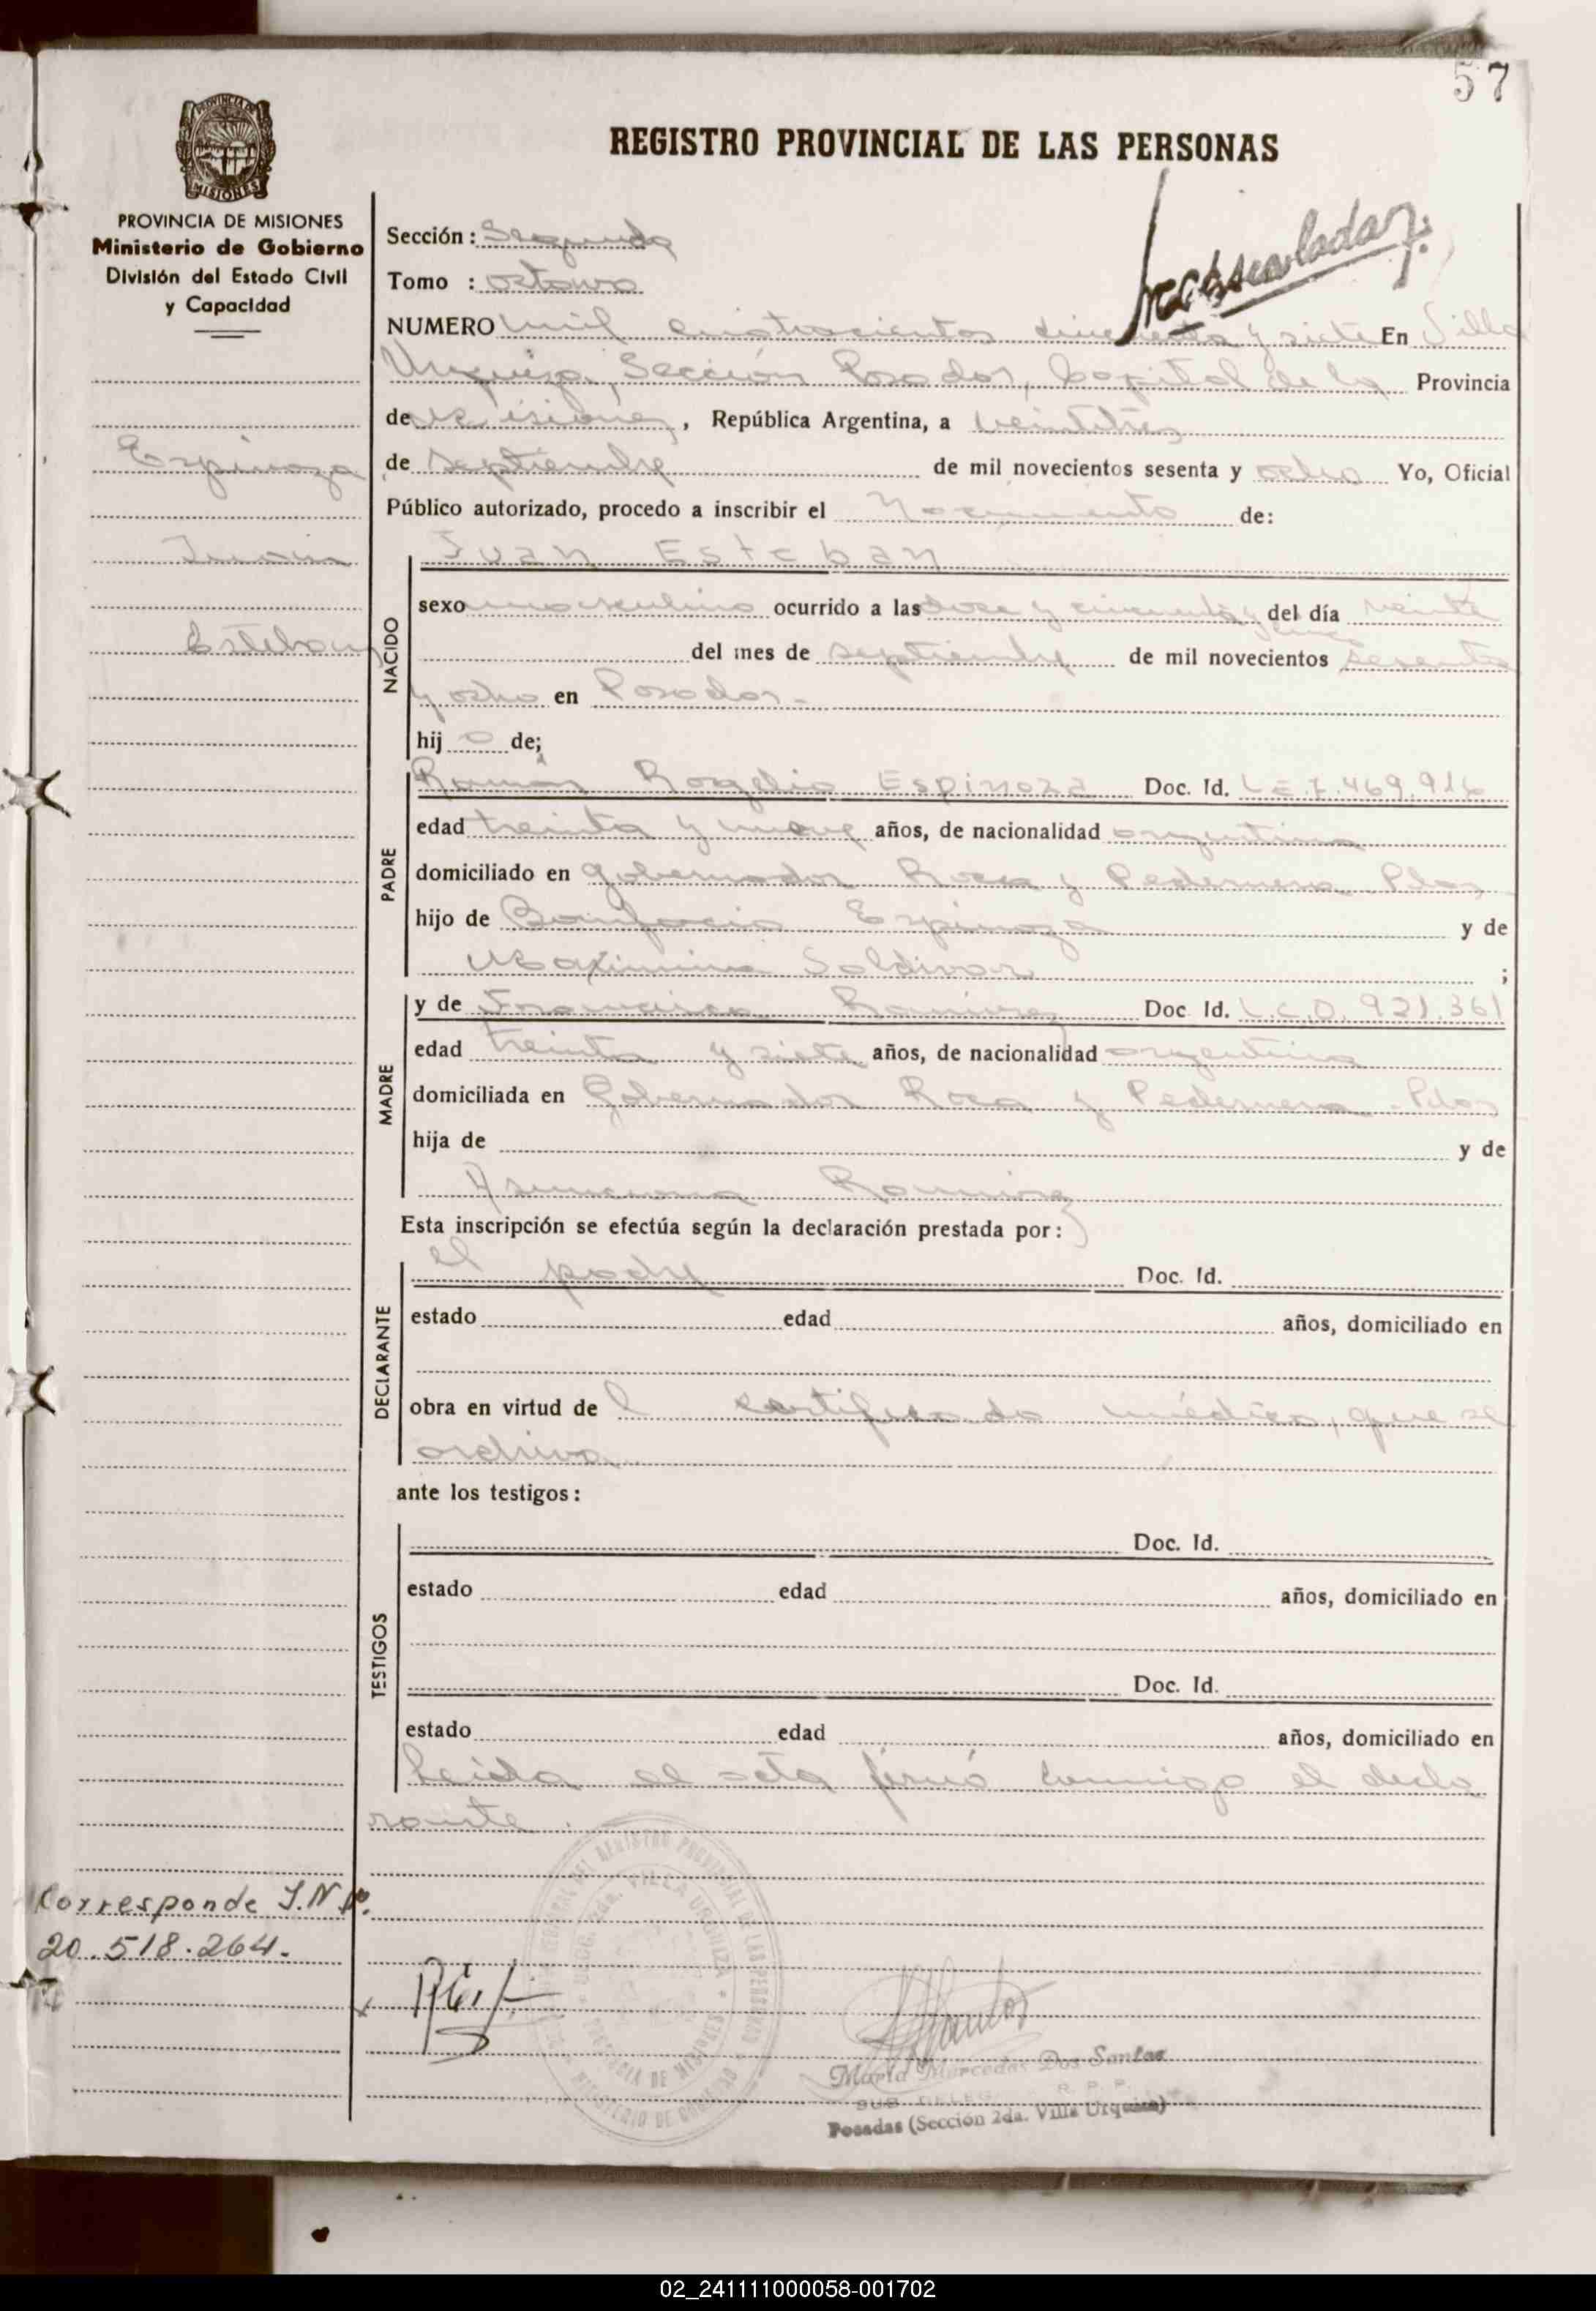 57
REGISTRO PROVINCIAL DE LAS PERSONAS
PROVINCIA DE MISIONES
PROVINCIA DE MISIONES
Ministerio de Gobierno
División del Estado Civil
y Capacidad
Sección: Segunda
Tomo : octavo
NUMERO mil cuatrocientos cincuenta y siete En Villa
Urquiza, Sección Posadas, Capital de la Provincia
de Misiones, República Argentina, a veintitrés
de septiembre de mil novecientos sesenta y ocho Yo, Oficial
Público autorizado, procedo a inscribir el Nacimiento de:
Espinoza
Juan
Esteban
Juan Esteban
NACIDO
sexo masculino ocurrido a las doce y cincuenta y cinco del día veinte
del mes de septiembre de mil novecientos sesenta
y ocho en Posadas.-
hijo de;
PADRE
Ramón Rogelio Espinoza Doc. Id. L E 7.469.916
edad treinta y nueve años, de nacionalidad argentina
domiciliado en Gobernador Roca y Pedernera Pdas
hijo de Bonifacio Espinoza y de
Maximina Saldivar ;
MADRE
y de Francisca Ramirez Doc Id. L.C.0.921.361
edad treinta y siete años, de nacionalidad argentina
domiciliada en Gobernador Roca y Pedernera - Pdas
hija de y de
Asunciona Ramirez
Esta inscripción se efectúa según la declaración prestada por:
DECLARANTE
el padre Doc. Id.
estado edad años, domiciliado en
obra en virtud de l certificado médico, que se
archiva
ante los testigos:
TESTIGOS
Doc. Id.
estado edad años, domiciliado en
Doc. Id.
estado edad años, domiciliado en
Leída el acta firmó conmigo el decla
rante.
Corresponde I.N Nº.
20.518.264.
VILLA URQUIZA
María Mercedes Dos Santos
SUB DELEG R. P. P.
Posadas (Sección 2da. Villa Urquiza)
02_241111000058-001702